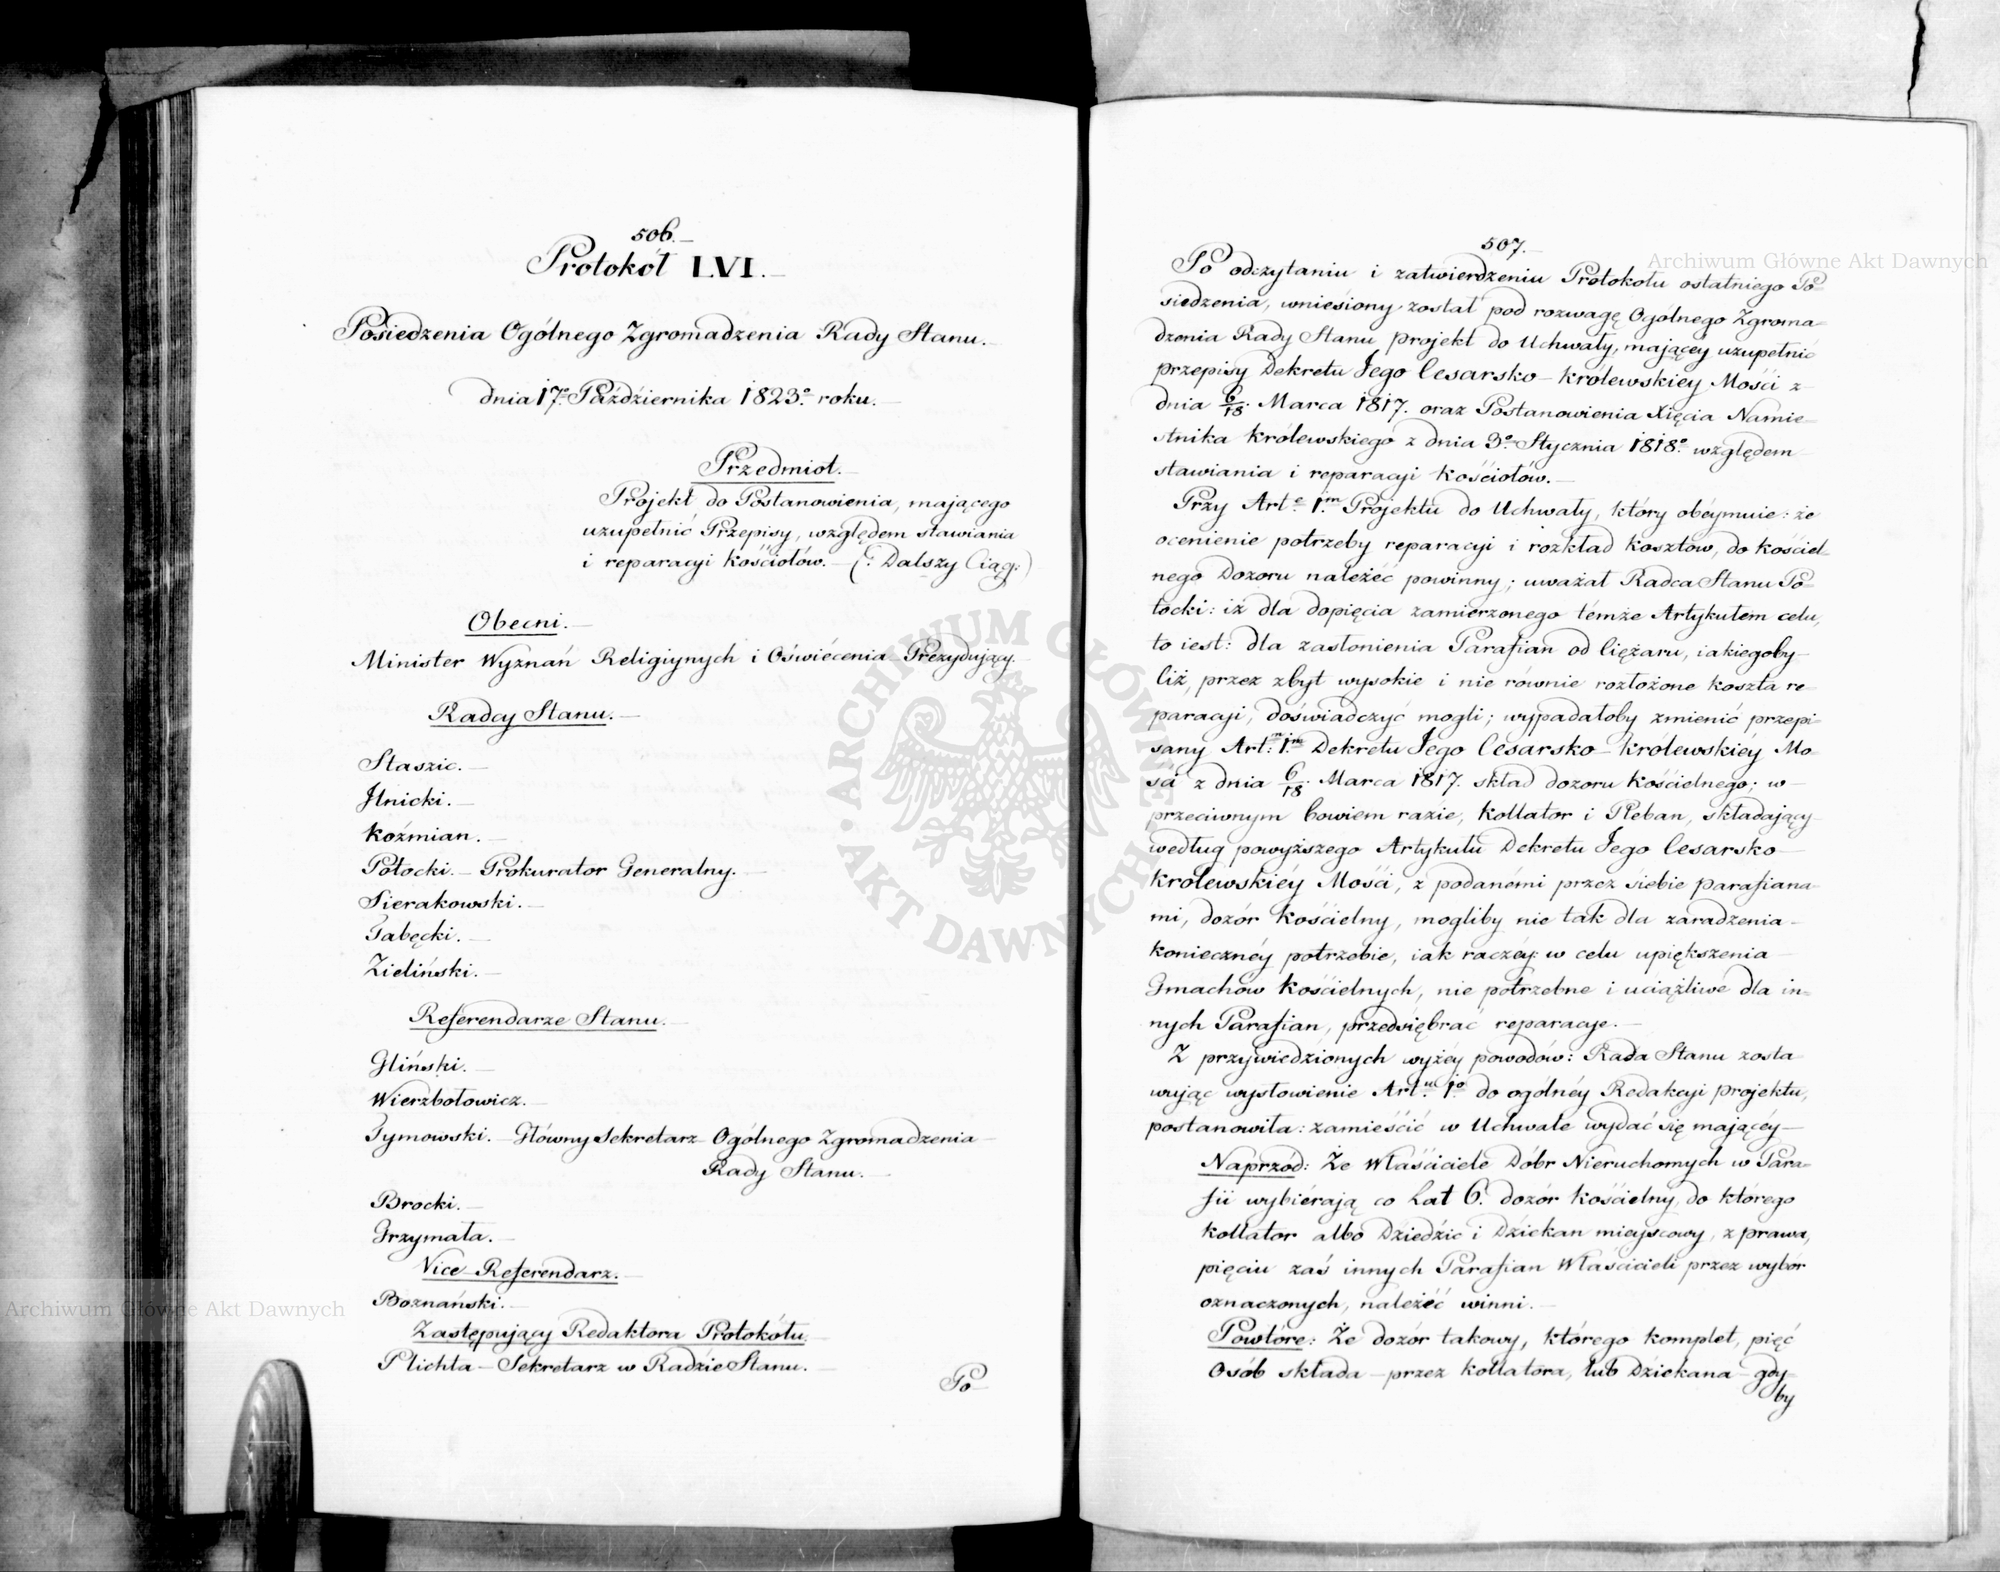 506.
Protokół LVI.
Posiedzenia Ogólnego Zgromadzenia Rady Stanu.
dnia 17º Października 1823º roku.
Przedmiot.
Projekt do Postanowienia, mającego
uzupełnić Przepisy, względem stawiania
i reparacyi Kościołów. (: Dalszy Ciąg:)
Obecni.
Minister Wyznań Religiynych i Oświécenia Prezydujący.
Radcy Stanu.
Staszic.
Jlnicki.
Koźmian.
Potocki. – Prokurator Generalny.
Sierakowski.
Tabęcki.
Zieliński.
Referendarze Stanu.
Gliński.
Wierzbołowicz.
Tymowski. – Główny Sekretarz Ogólnego Zgromadzenia
Rady Stanu.
Brocki.
Grzymała.
Vice-Referendarz.
Boznański.
Zastępujący Redaktora Protokółu
Plichta – Sekretarz w Radzie Stanu.
Po
507.
Po odczytaniu i zatwierdzeniu Protokołu ostatniego Po-
siedzenia, wniesiony został pod rozwagę Ogólnego Zgroma-
dzenia Rady Stanu projekt do Uchwały, mającéy uzupełnić
przepisy Dekretu Jego Cesarsko-Królewskiéy Mości z
dnia 6/18. Marca 1817. oraz Postanowienia Xięcia Namie-
stnika Królewskiego z dnia 3º Stycznia 1818º względem
stawiania i reparacyi Kościołów.
Przy Art.e 1.m Projektu do Uchwały, który obéymuie: że
ocenienie potrzeby reparacyi i rozkład kosztów, do kościel-
nego Dozoru należéć powinny; uważał Radca Stanu Po-
tocki: iż dla dopięcia zamierzonego témże Artykułem celu,
to iest: dla zasłonienia Parafian od Ciężaru, iakiegoby
Ciż, przez zbyt wysokie i nie równie rozłożone koszta re-
paracyi, doświadczyć mogli; wypadałoby zmienić przepi-
sany Art.m 1.m Dekretu Jego Cesarsko-Królewskiéy Mo-
ści z dnia 6/18. Marca 1817. skład dozoru Kościelnego; w
przeciwnym bowiem razie, Kollator i Pleban, składający
według powyższego Artykułu Dekretu Jego Cesarsko
Królewskiéy Mości, z podanémi przez siebie parafiana-
mi, dozór Kościelny, mogliby nie tak dla zaradzenia
koniecznéy potrzebie, iak raczéy w celu upiększenia
Gmachów Kościelnych, nie potrzebne i uciążliwe dla in-
nych Parafian, przedsiębrać reparacye.
Z przywiedzionych wyżéy powodów: Rada Stanu zosta-
wując wysłowienie Art.u 1.o do ogólnéy Redakcyi projektu,
postanowiła: zamieścić w Uchwale wydać się mającéy
Naprzód: Że Właściciele Dóbr Nieruchomych w Para-
fii wybiérają co Lat 6. dozór Kościelny, do którego
Kollator albo Dziedzic i Dziekan mieyscowy, z prawa,
pięciu zaś innych Parafian Właścicieli przez wybór
oznaczonych, należéć winni.
Powtóre: Że dozór takowy, którego komplet, pięć
Osób składa – przez Kollatora, lub Dziekana gdy-
by
Archiwum Główne Akt Dawnych
Archiwum Główne Akt Dawnych
ARCHIWUM GŁÓWNE AKT DAWNYCH